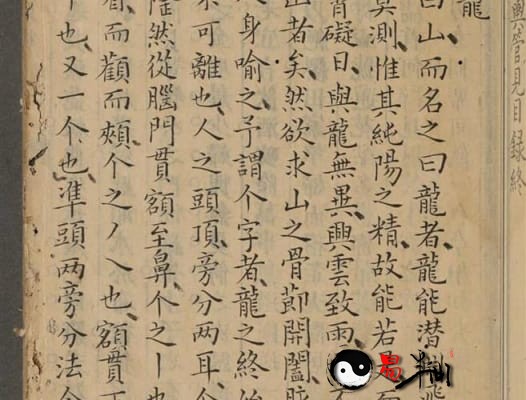 輿管見目録終
龍
曰山而名之曰龍者龍能潜
莫測惟其純陽之精故能若
礙日與龍無異興雲致雨
出者矣然欲求山之骨節開闔脉
人身喻之予謂个字者龍之終始
不可離也人之頭頂旁分两耳个
隆然從腦門貫額至鼻个之丨也
而顴而頰个之丿乀也額貫
也又一个也準頭两旁分法令